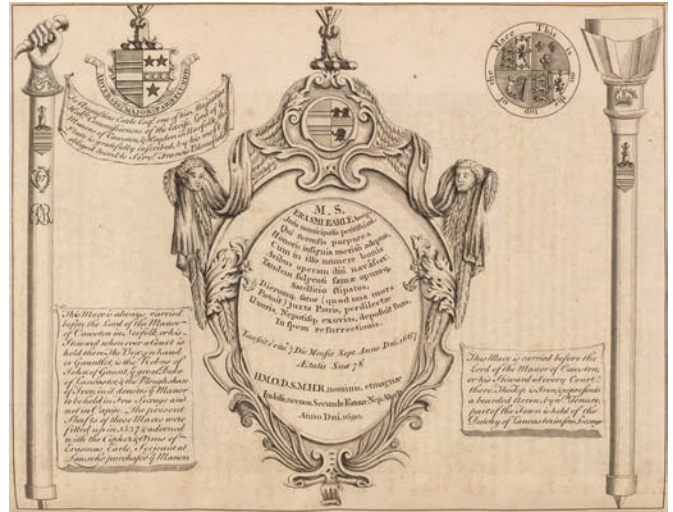 AUT VINCIT MAJOR PARS EUROR
To Augustine Earle Esqr. one of his Majesties
Honble. Commissioners of the Excise, Lord of ye
Manors of Cawston, & Heydon in Norfolk, this
Plate is gratefully inscribed, by his most
obliged humble Servt. Francis Blomefield
This is on the top of the Mace
M. S.
ERASMI EARLE
Juris municipalis peritissimi.
Qui forensis purpurea
Honoris insignia meritis adeptus,
Cum in illo munere bonis
Avibus operam diu navasset:
Tandem fulgenti famæ opumq.
Satellitio stipatus,
Dierumq. satur (quod una mors
Potuit) juxta Patris, perdilectæ
Uxoris, Nepotisq. exuvias, deposuit suas,
In spem resurrectionis.
Die Mensis Sept. Anno Dni. 1667
Ætatis Suæ 78
H.M.O.D.S.M.H.R. nominis, et magnæ
Indolis, nec non Secundæ Fortunæ Nep. Alter
Anno Dni. 1690.
This Mace is always carried
before the Lord of the Manor
of Cawston in Norfolk, or his
Steward when ever a Court is
held there. The Brazen hand
or Gauntlet, is the Rebus of
John of Gaunt, ye great Duke
of Lancaster, & the Plough share
of Iron in it denotes ye Manor
to be held in free Socage and
not in Capite. The present
Shafts of these Maces were
fitted up in & adorned
with the Cipher & Arms of
Erasmus Earle, Serjeant at
Law, who purchased ye Manor.
This Mace is carried before the
Lord of the Manor of Cawston,
or his Steward at every Court
there. The top is Iron, & represents
a bearded Arrow, by wch. Tenure,
part of the Town is held of the
Dutchy of Lancaster in free Socage